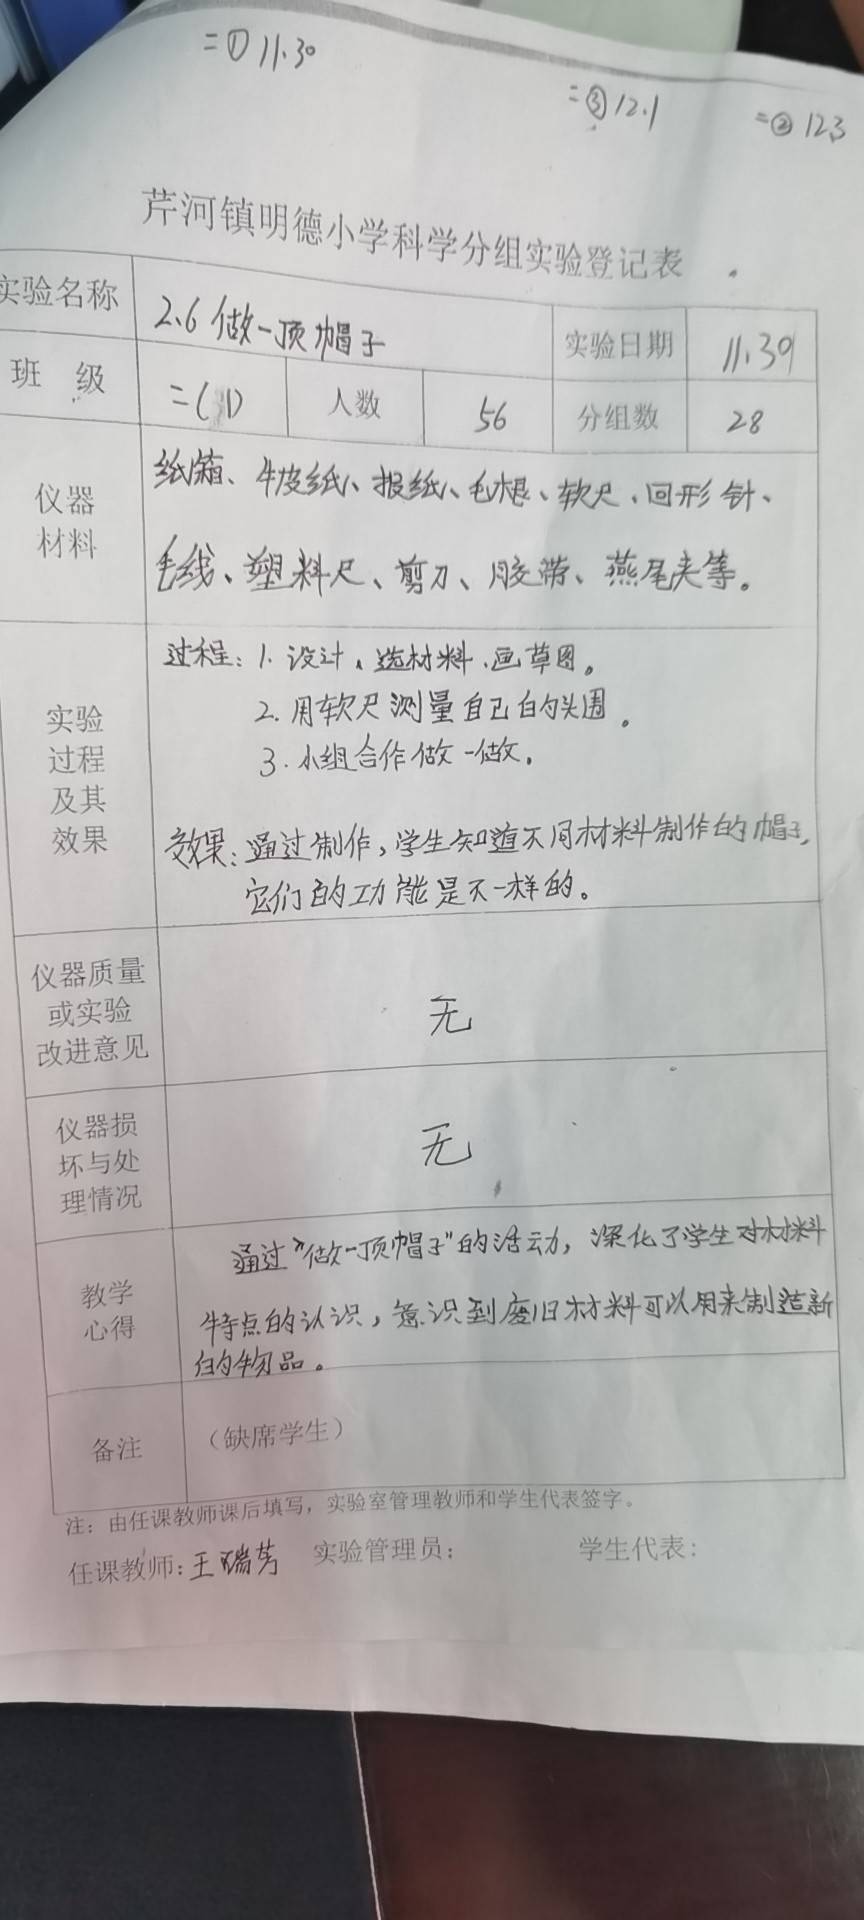 二① 11.30
二③ 12.1
二② 12.3
芹河镇明德小学科学分组实验登记表
实验名称 2.6 做一顶帽子 实验日期 11.30
班 级 二(1) 人数 56 分组数 28
仪器
材料
纸箱、牛皮纸、报纸、毛根、软尺、回形针、
毛线、塑料尺、剪刀、胶带、燕尾夹等。
实验
过程
及其
效果
过程: 1. 设计、选材料、画草图。
2. 用软尺测量自己的头围。
3. 小组合作做一做。
效果: 通过制作,学生知道不同材料制作的帽子,
它们的功能是不一样的。
仪器质量
或实验
改进意见
无
仪器损
坏与处
理情况
无
教学
心得
通过"做一顶帽子"的活动,深化了学生对材料
特点的认识,意识到废旧材料可以用来制造新
的物品。
备注 (缺席学生)
注:由任课教师课后填写,实验室管理教师和学生代表签字。
任课教师:王瑞芳 实验管理员: 学生代表: